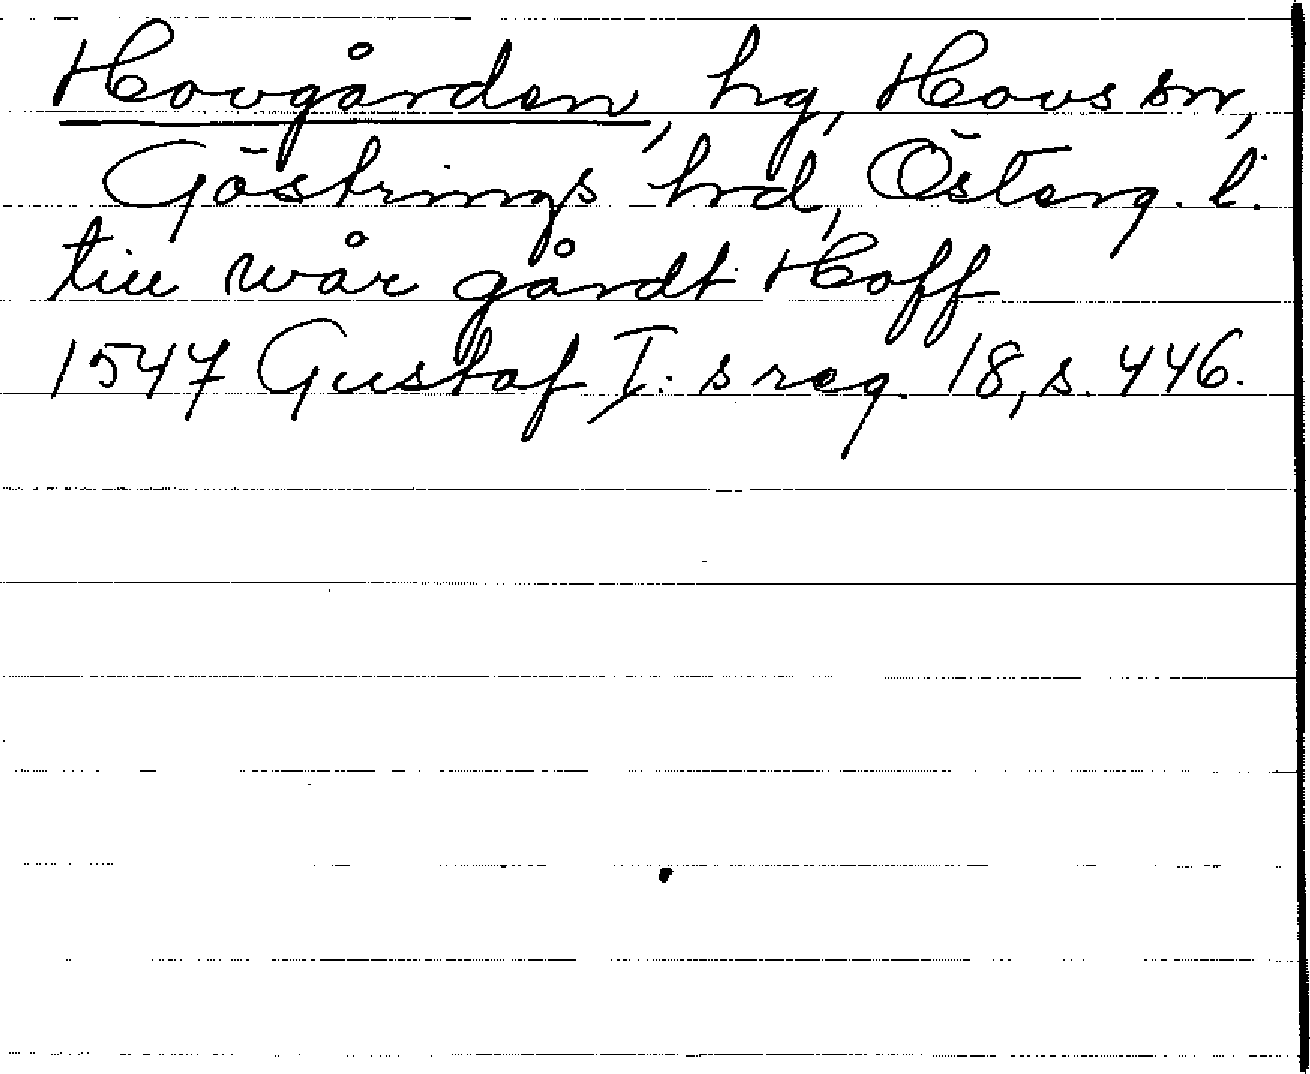 Hovgården, hg, Hovs sn,
Göstrings hrd, Österg. l.
till wår gårdt Hoff
1547 Gustaf I:s reg. 18, s. 446.